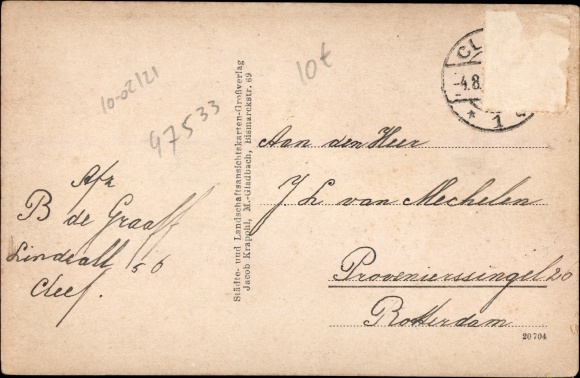 10-02/21
97533
10t
CL
-4.8.
* 1
Afz
B de Graaff
Lindeall 56
Cleef.
Städte- und Landschaftsansichtskarten-Großverlag
Jacob Krapohl, M.-Gladbach, Bismarckstr. 69
Aan den Heer
J. L. van Mechelen
Provenierssingel 20
Rotterdam
20704